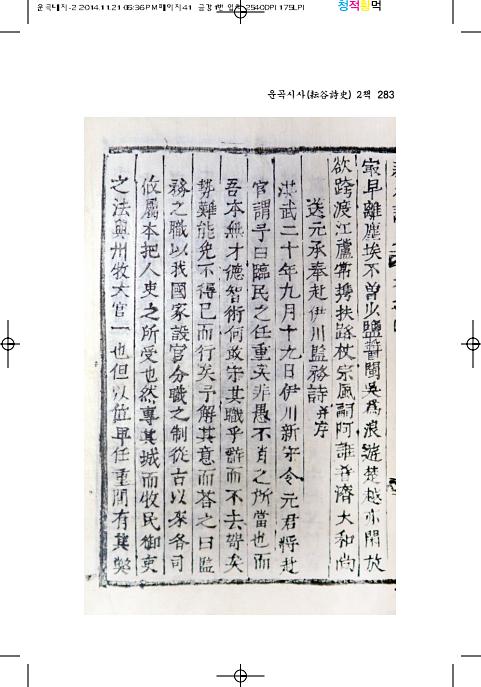 운곡대지-2 2014.11.21 05:36 PM 페이지41
2540DPI 175LPI
청적황먹
운곡시사(耘谷詩史) 2책 283
最早離塵埃不曾少鹽醬閩吳爲浪遊楚越亦閑放
欲跨渡江蘆常携扶路杖宗風嗣阿誰普濟大和尚
送元承奉赴伊川監務詩幷序
洪武二十年九月十九日伊川新守令元君將赴
官謂予曰臨民之任重矣非愚不肖之所當也而
吾本無才德智術何敢守其職乎辭而不去勢矣
勢難能免不得已而行矣予解其意而答之曰監
務之職以我國家設官分職之制從古以來各司
攸屬本把人吏之所受也然專其城而牧民御吏
之法與州牧大官一也但以位卑任重間有其弊